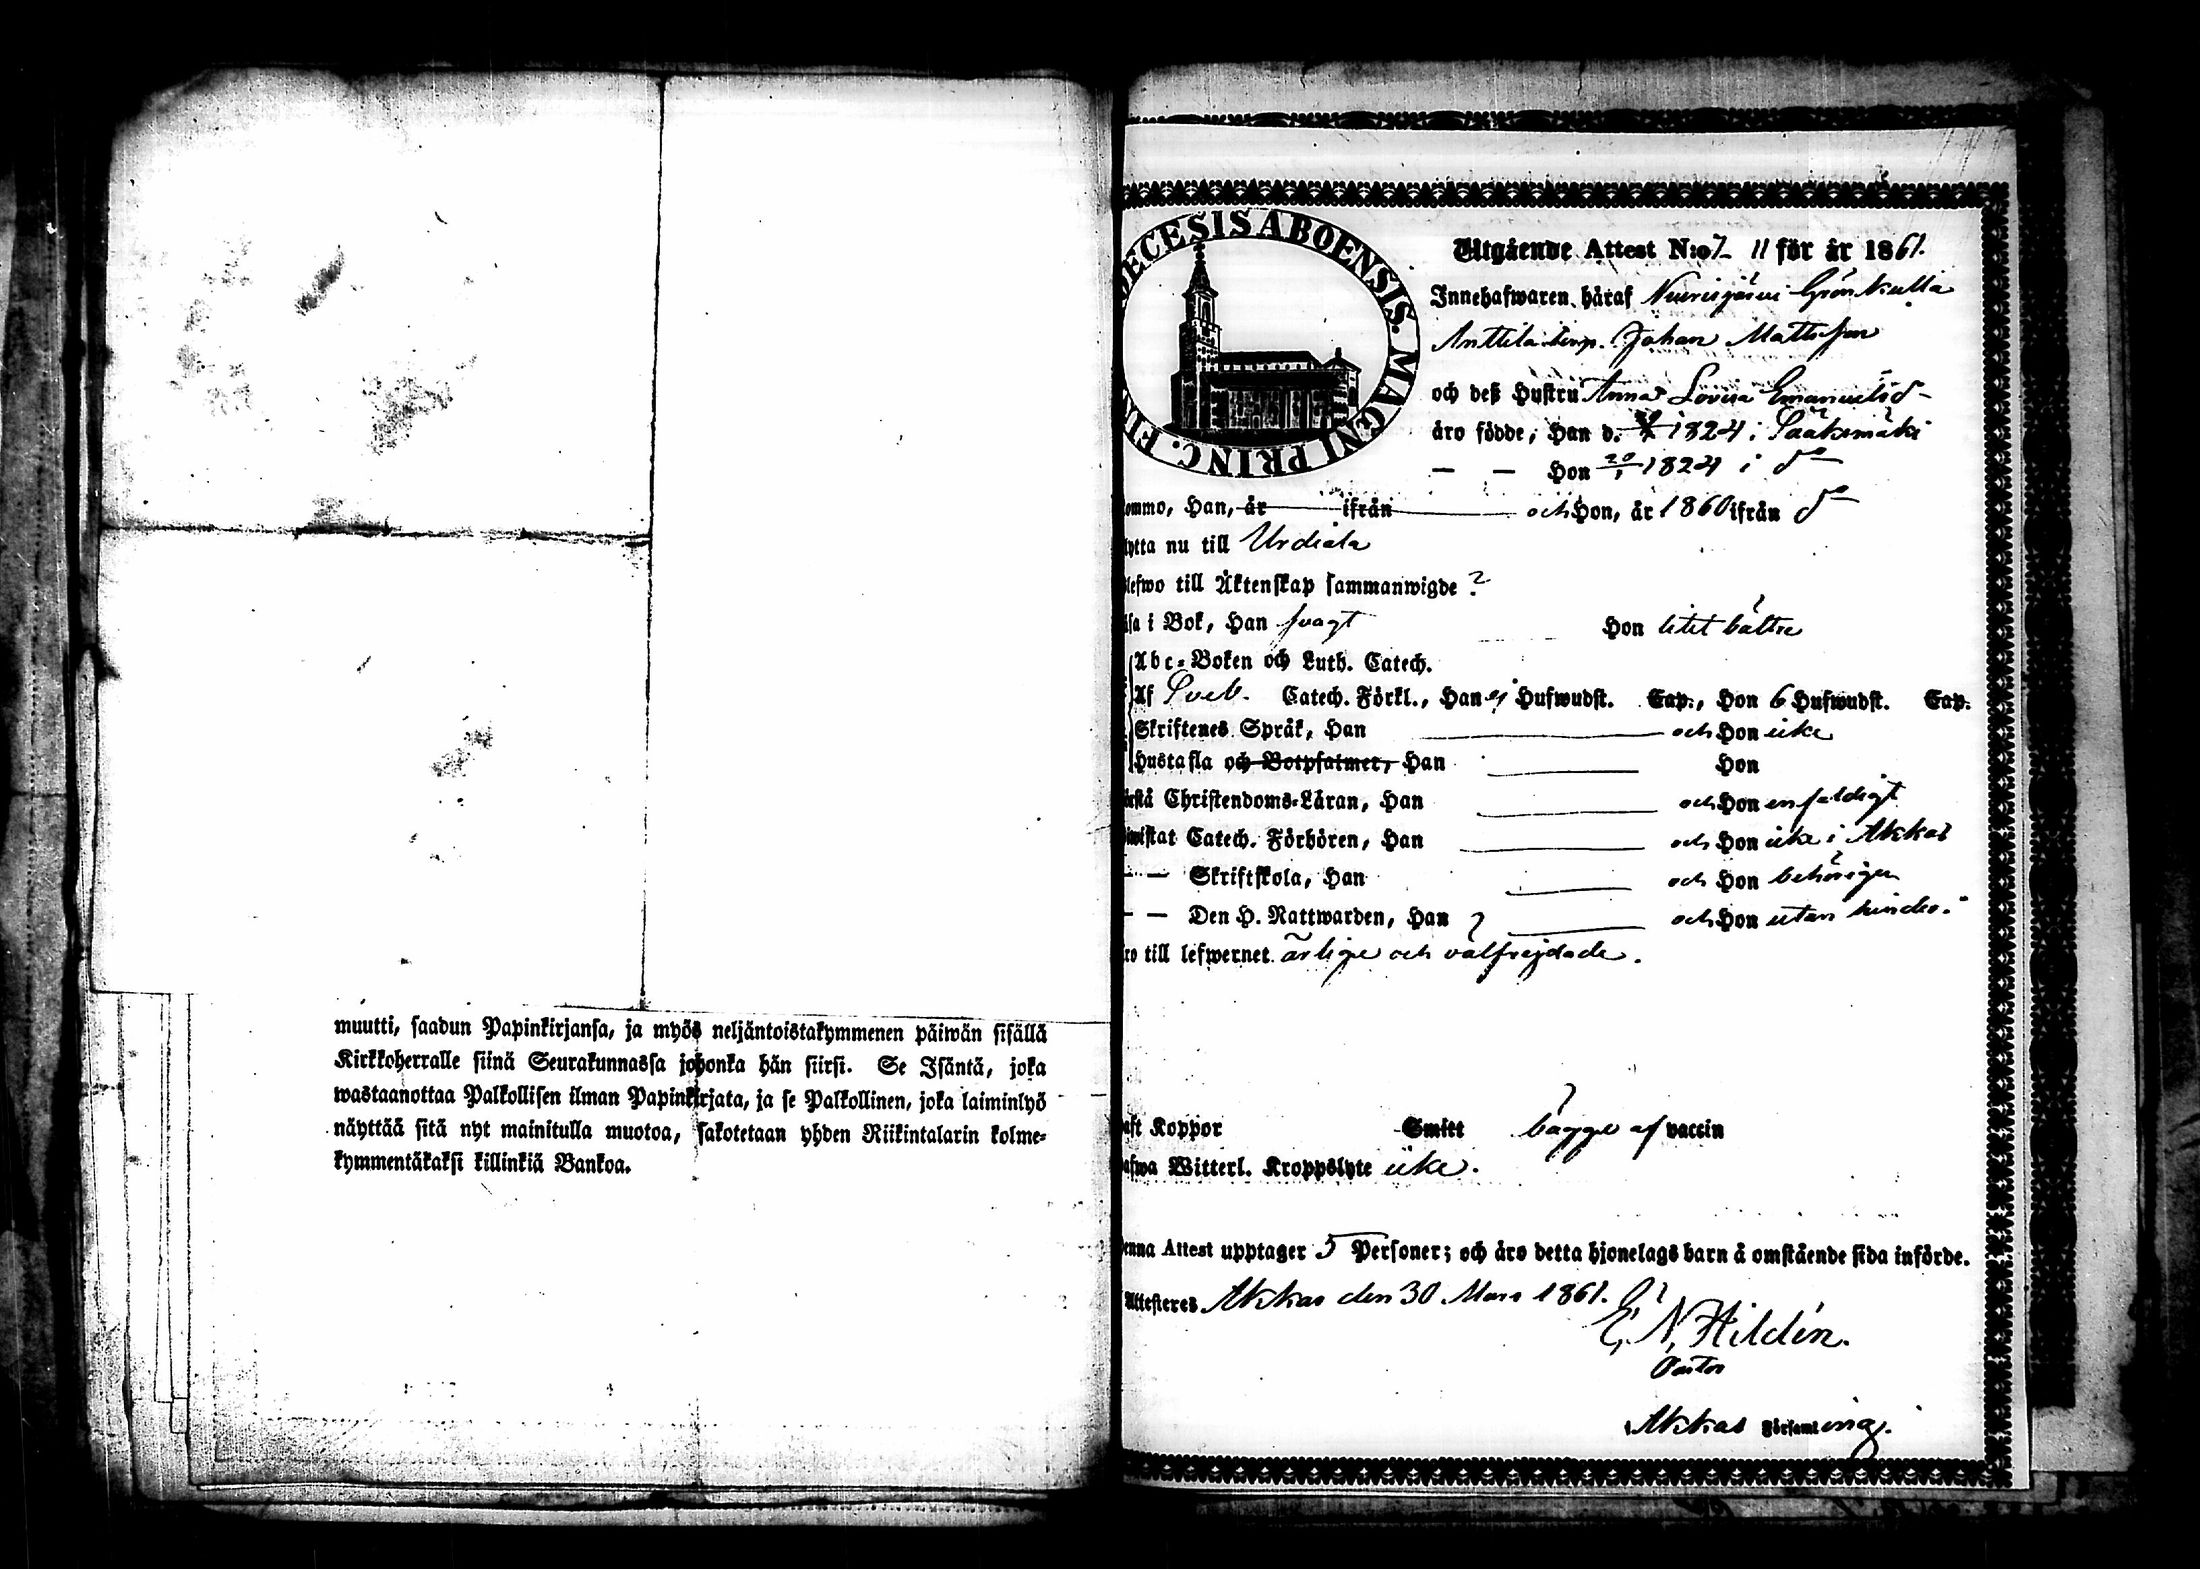 muutti, saadun Papinkirjansa, ja myös neljäntoistakymmenen päiwän sisällä
Kirkkoherralle siinä Seurakunnassa johonka hän siirsi. Se Isäntä, joka
wastaanottaa Palkollisen ilman Papinkirjata, ja se Palkollinen, joka laiminlyö
näyttää sitä nyt mainitulla muotoa, sakotetaan yhden Riikintalarin kolme-
kymmentäkaksi killinkiä Bankoa.
DECESIS ABOENSIS. MAGNI PRINC. FIN
Utgående Attest N:o 7 11 för år 1861.
Innehafwaren häraf Nuurisjärvi Grönkulla
Anttila Johan Mattsson
och deß Hustru Anna Lovisa Emanuelsd
äro födde, Han d. 1824 i Sääksmäki
— — Hon 20/1 1824 i do
ommo, Han, år ifrån och Hon, år 1860 ifrån do
lytta nu till Urdiala
lefwo till Äktenskap sammanwigde ?
äsa i Bok, Han svagt Hon litet bättre
Abc-Boken och Luth. Catech.
Af Sveb. Catech. Förkl., Han ej Hufwudst. Cap., Hon 6 Hufwudst. Cap.
Skriftenes Språk, Han och Hon icke
Hustafla och Botpsalmer, Han Hon
örstå Christendoms-Läran, Han och Hon enfaldigt
iwistat Catech. Förhören, Han och Hon icke i Akkas
— — Skriftskola, Han och Hon behörigen
— — Den H. Nattwarden, Han ? och Hon utan hinder.
ro till lefwernet ärlige och välfrejdade.
aft Koppor Smitt bägge af vaccin
afwa Witterl. Kroppslyte icke.
enna Attest upptager 5 Personer; och äro detta hjonelags barn å omstående sida införde.
Attesteres Akkas den 30 Mars 1861.
E. N. Hildén.
Pastor
Akkas Församling.